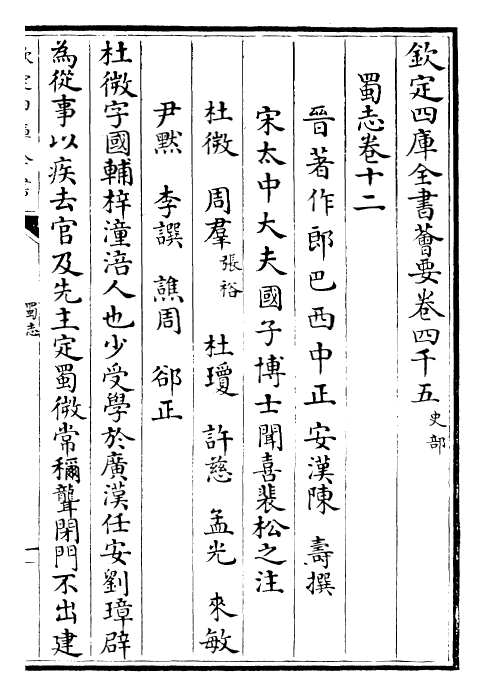 欽定四庫全書薈要卷四千五 史部
蜀志卷十二
晉著作郎巴西中正安漢陳 壽撰
宋太中大夫國子博士聞喜裴松之注
杜微 周羣 張裕 杜瓊 許慈 孟光 來敏
尹黙 李譔 譙周 郤正
杜微字國輔梓潼涪人也少受學於廣漢任安劉璋辟
為從事以疾去官及先主定蜀微常稱聾閉門不出建
蜀志
一